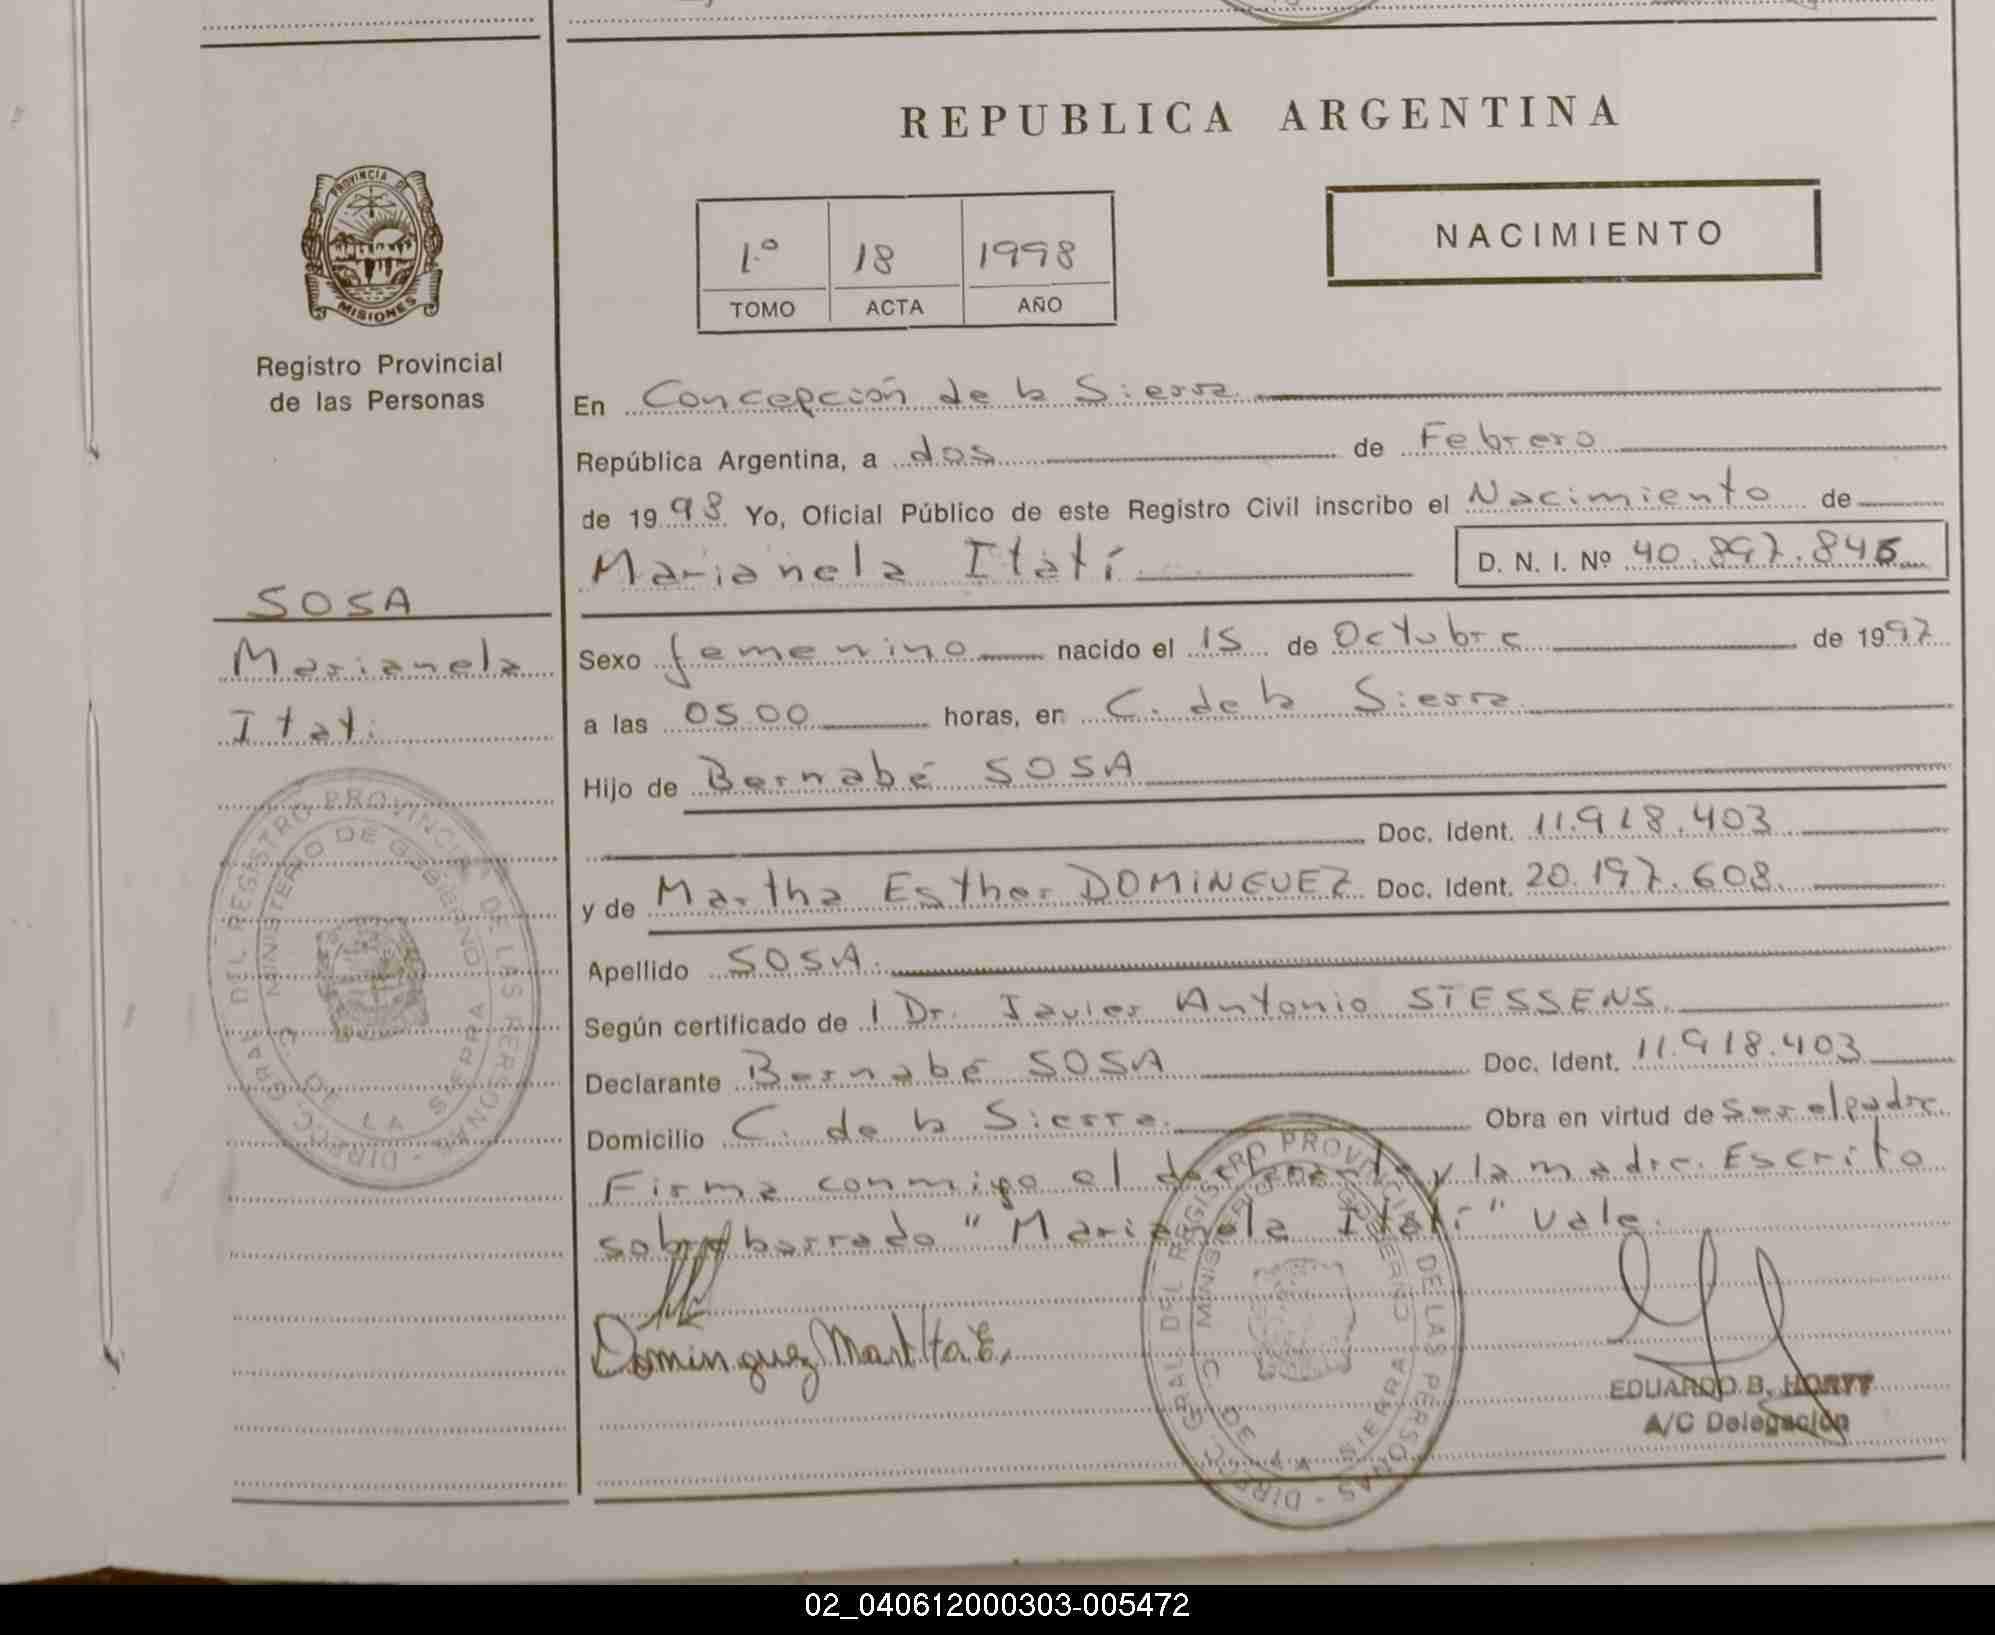 REPUBLICA ARGENTINA
PROVINCIA DE
MISIONES
Registro Provincial
de las Personas
NACIMIENTO
1.º 18 1998
TOMO ACTA AÑO
En Concepción de la Sierra
República Argentina, a dos de Febrero
de 1998 Yo, Oficial Público de este Registro Civil inscribo el Nacimiento de
Marianela Itatí D. N. I. Nº 40.897.846
SOSA
Marianela
Itatí
Sexo femenino nacido el 15 de Octubre de 1997
a las 05.00 horas, en C. de la Sierra
Hijo de Bernabé SOSA
Doc. Ident. 11.918.403
y de Martha Esther DOMINGUEZ Doc. Ident. 20.197.608
Apellido SOSA.
Según certificado de l Dr. Javier Antonio STESSENS.
Declarante Bernabé SOSA Doc. Ident. 11.918.403
Domicilio C. de la Sierra. Obra en virtud de ser el padre.
Firma conmigo el declarante y la madre. Escrito
sobre borrado "Marianela Itatí" Vale.
Dominguez Martha E.
EDUARDO B.
A/C Delegación
DIREC. GRAL DEL REGISTRO PROVINCIAL DE LAS PERSONAS
MINISTERIO DE GOBIERNO
C. DE LA SIERRA
DIREC. GRAL DEL REGISTRO PROVINCIAL DE LAS PERSONAS
MINISTERIO DE GOBIERNO
C. DE LA SIERRA
02_040612000303-005472